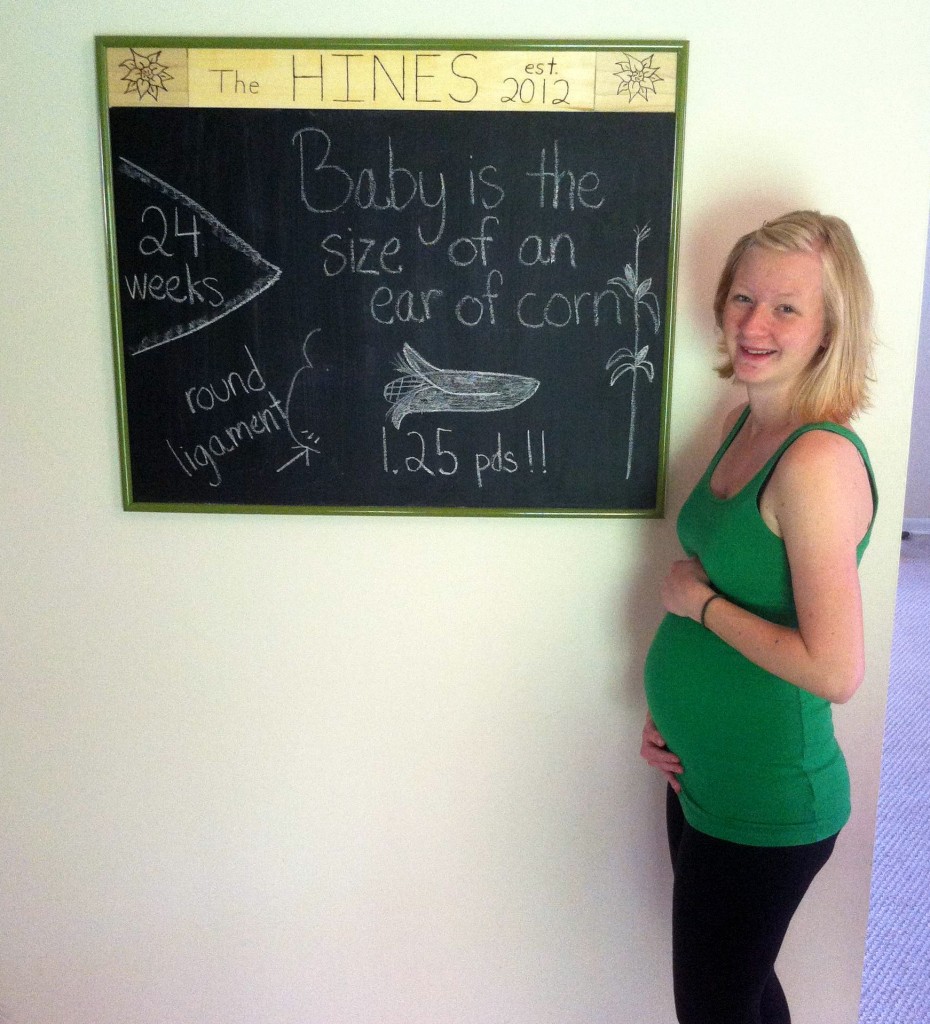 The HINES est. 2012
24 weeks
Baby is the
size of an
ear of corn
round
ligament
1.25 pds!!